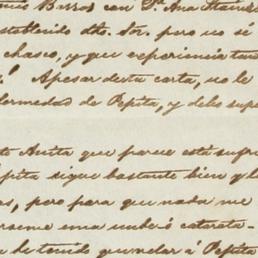 Barros con Dª. Ana
establecido dho. Sor. pero no sé
chasco, y que experiencia tan
Apesar desta carta, no le
enfermedad de Pepita, y debo
Anita que parece está
Pepita sigue bastante bien y
pero para que nada me
una catarata
de tenido que velar á Pepita